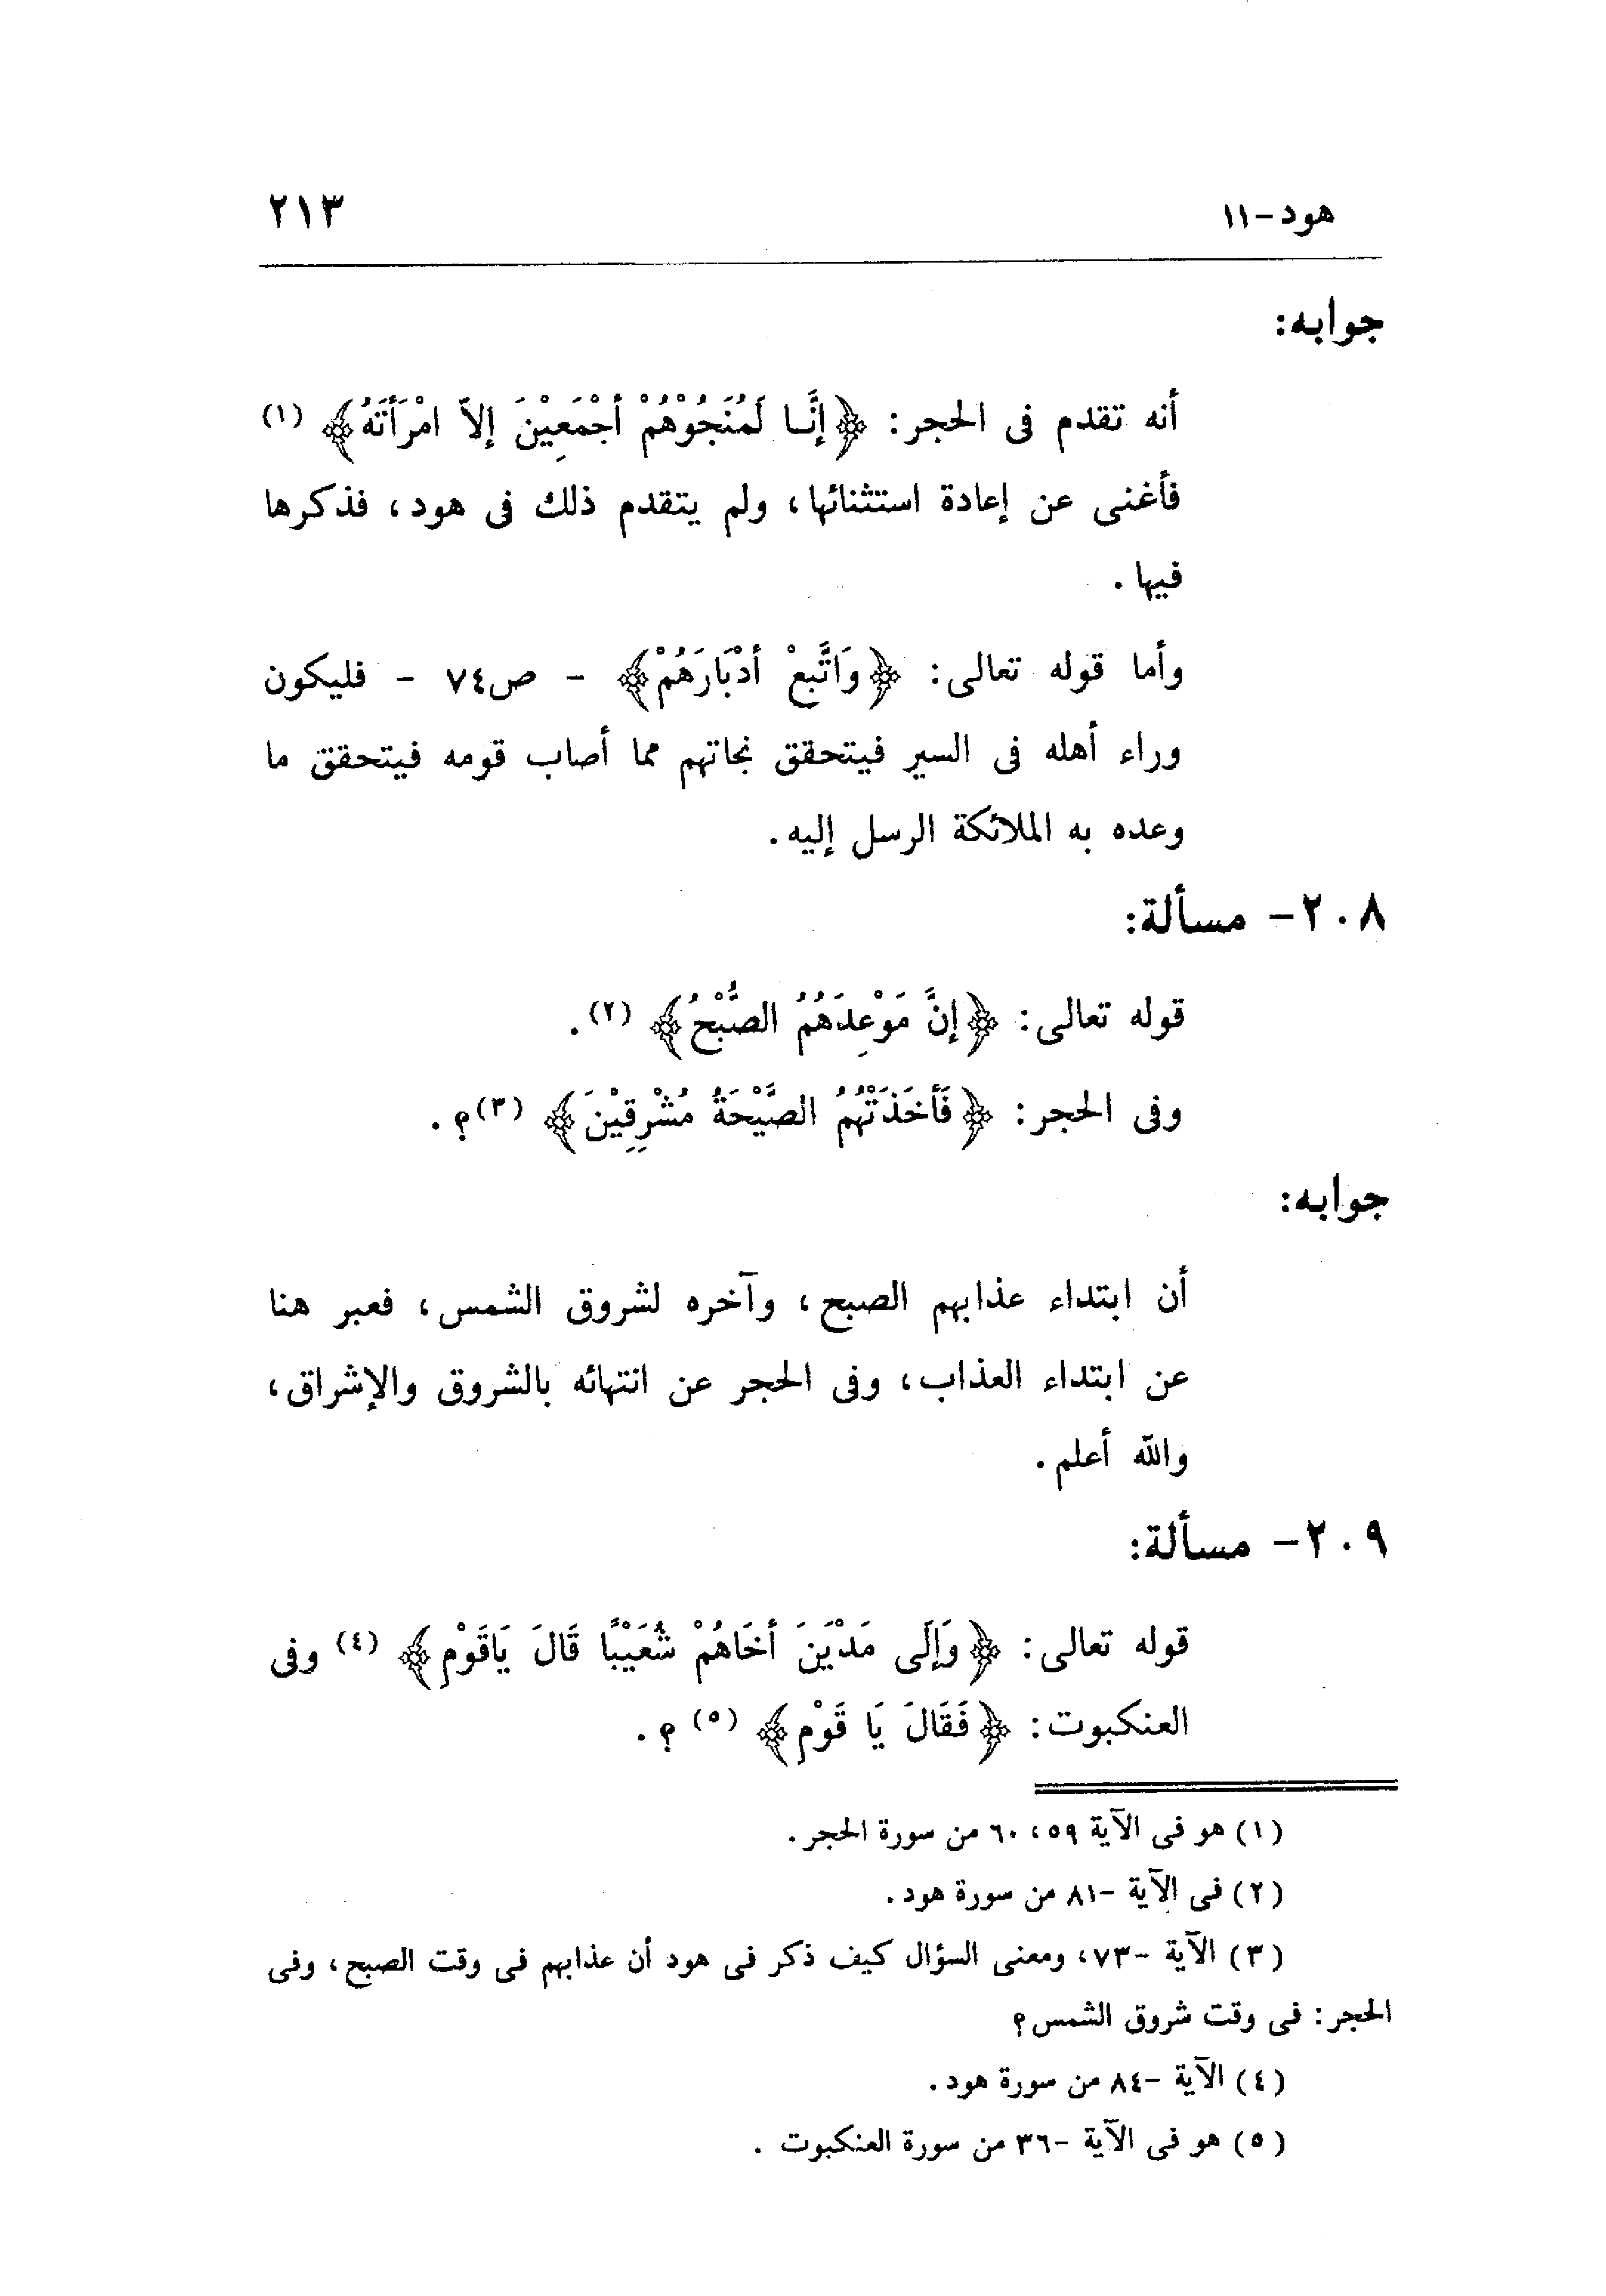 هود-١١ ٢١٣
جوابه:
أنه تقدم فى الحجر: ﴿إنَّا لَمُنَجُوْهُمْ أجْمَعِيْنَ إلاّ امْرَأتَهُ﴾ (١)
فأغنى عن إعادة استثنائها، ولم يتقدم ذلك فى هود، فذكرها
فيها.
وأما قوله تعالى: ﴿وَاتَّبعْ أدْبَارَهُمْ﴾ - ص٧٤ - فليكون
وراء أهله فى السير فيتحقق نجاتهم مما أصاب قومه فيتحقق ما
وعده به الملائكة الرسل إليه.
٢٠٨- مسألة:
قوله تعالى: ﴿إنَّ مَوْعِدَهُمُ الصُّبْحُ﴾ (٢).
وفى الحجر: ﴿فَأخَذَتْهُمُ الصَّيْحَةُ مُشْرِقِيْنَ﴾ (٣)؟.
جوابه:
أن ابتداء عذابهم الصبح، وآخره لشروق الشمس، فعبر هنا
عن ابتداء العذاب، وفى الحجر عن انتهائه بالشروق والإشراق،
والله أعلم.
٢٠٩- مسألة:
قوله تعالى: ﴿وَإلَى مَدْيَنَ أخَاهُمْ شُعَيْبًا قَالَ يَاقَوْمِ﴾ (٤) وفى
العنكبوت: ﴿فَقَالَ يَا قَوْمِ﴾ (٥) ؟.
(١) هو فى الآية ٥٩، ٦٠ من سورة الحجر.
(٢) فى الآية -٨١ من سورة هود.
(٣) الآية -٧٣، ومعنى السؤال كيف ذكر فى هود أن عذابهم فى وقت الصبح، وفى
الحجر: فى وقت شروق الشمس؟
(٤) الآية -٨٤ من سورة هود.
(٥) هو فى الآية -٣٦ من سورة العنكبوت .